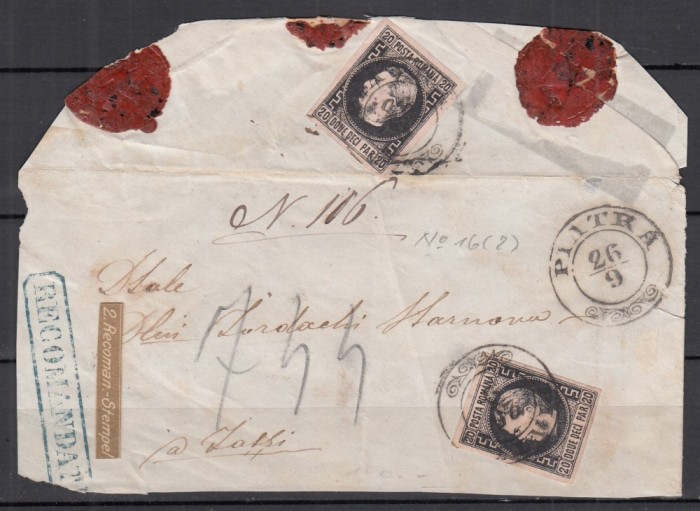 POSTA ROMANA
20 20
DOUE DECI PAR
20 20
N. 116.
No 16(2)
PIATRA
26
9
Dsale
Dlui Iordachi Harnova
744
a Iassi
RECOMANDAT
2. Recoman.-Stempel
20 POSTA ROMANA 20
20 DOUE DECI PAR 20